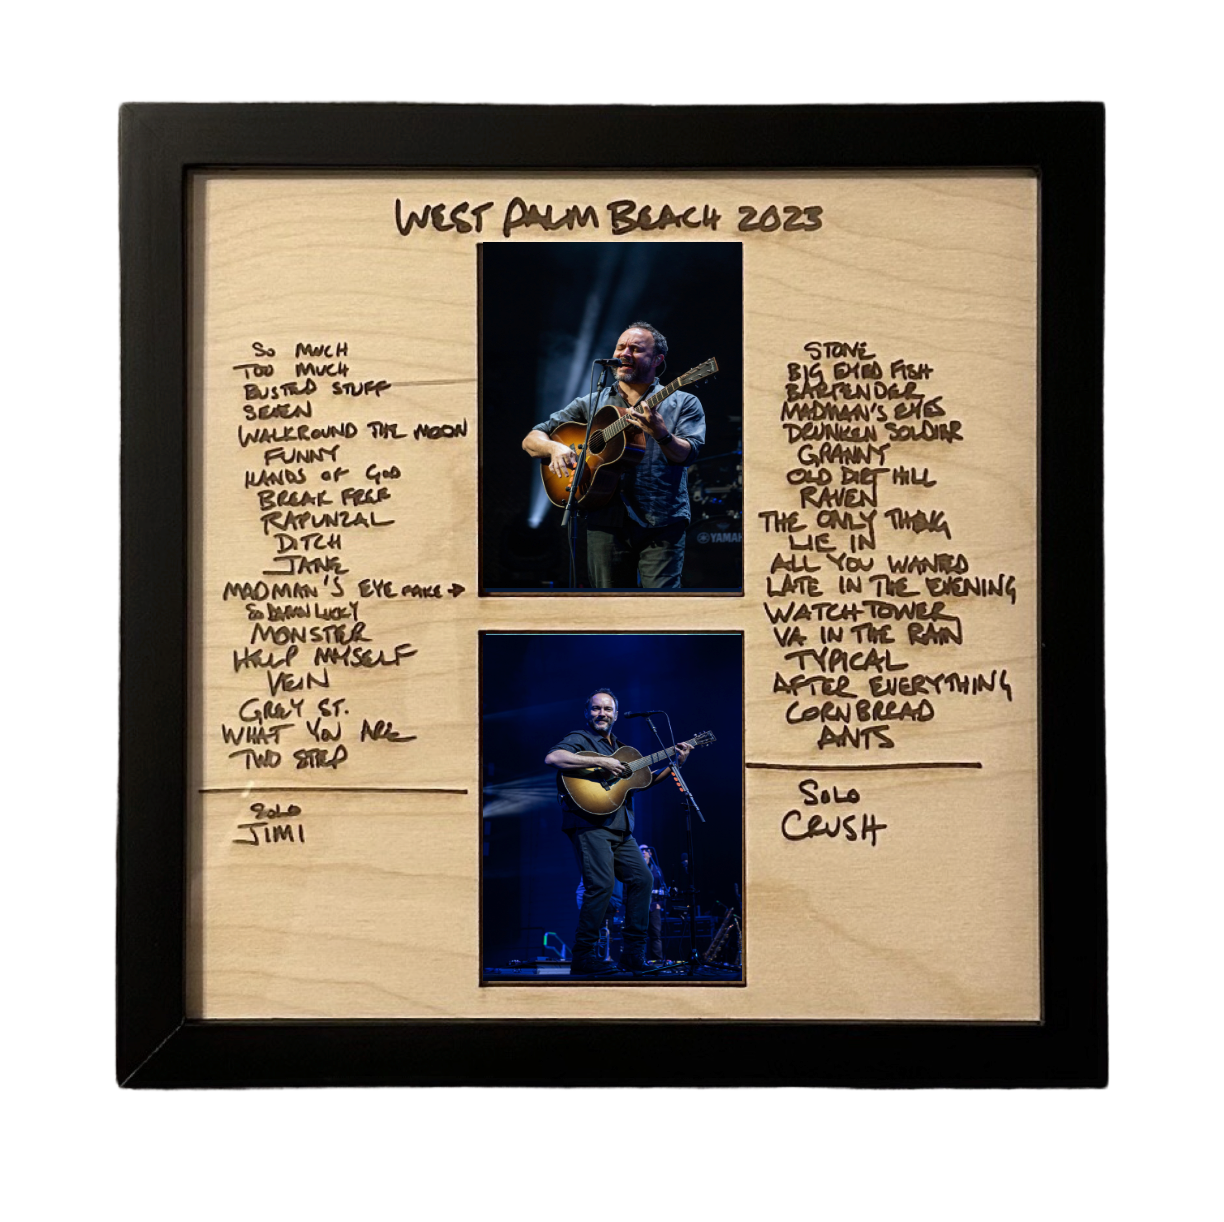 WEST PALM BEACH 2023
SO MUCH
TOO MUCH
BUSTED STUFF
SEVEN
WALKROUND THE MOON
FUNNY
HANDS OF GOD
BREAK FREE
RAPUNZAL
DITCH
JANE
MADMAN'S EYE FAKE →
SO DAMN LUCKY
MONSTER
HELP MYSELF
VEIN
GREY ST.
WHAT YOU ARE
TWO STEP
SOLO
JIMI
STONE
BIG EYED FISH
BARTENDER
MADMAN'S EYES
DRUNKEN SOLDIER
GRANNY
OLD DIRT HILL
RAVEN
THE ONLY THING
LIE IN
ALL YOU WANTED
LATE IN THE EVENING
WATCHTOWER
VA IN THE RAIN
TYPICAL
AFTER EVERYTHING
CORNBREAD
ANTS
SOLO
CRUSH
YAMAH